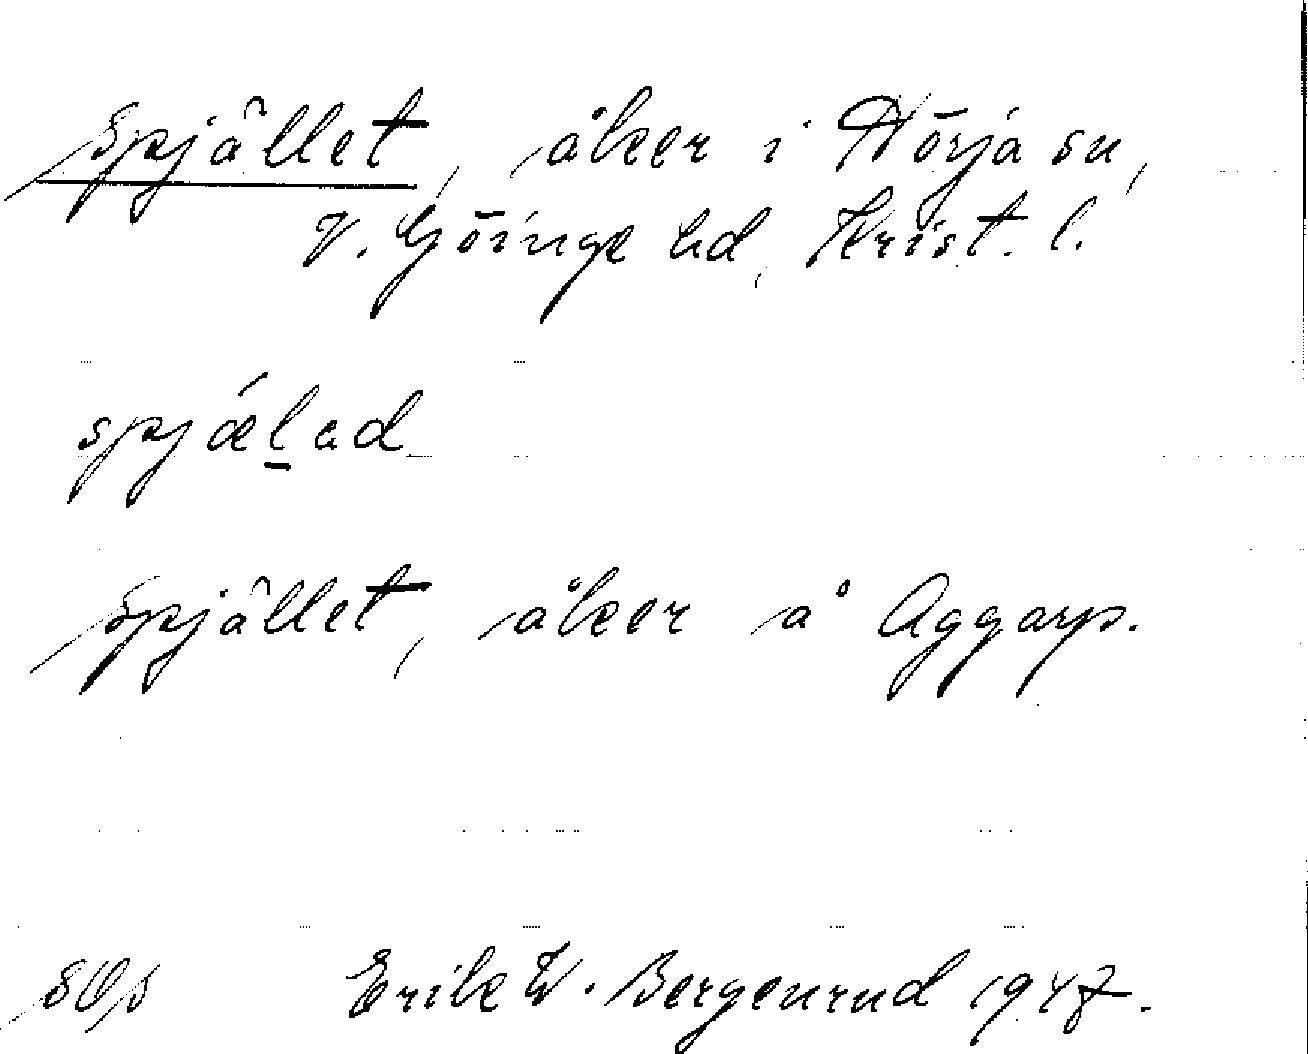 Spjället, åker i Nörja sn,
V. Göinge hd, Krist. l.
spjǽlad
Spjället, åker å Aggarp.
Erik W. Bergenrud 1947.